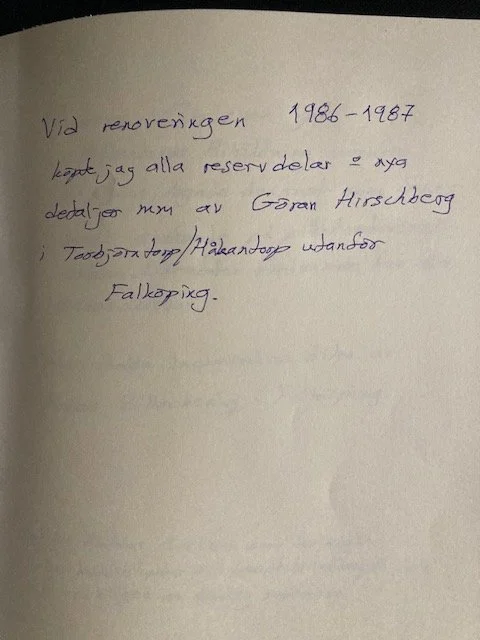 Vid renoveringen 1986-1987
köpte jag alla reservdelar o nya
detaljer mm av Göran Hirschberg
i Torbjörntorp/Håkantorp utanför
Falköping.